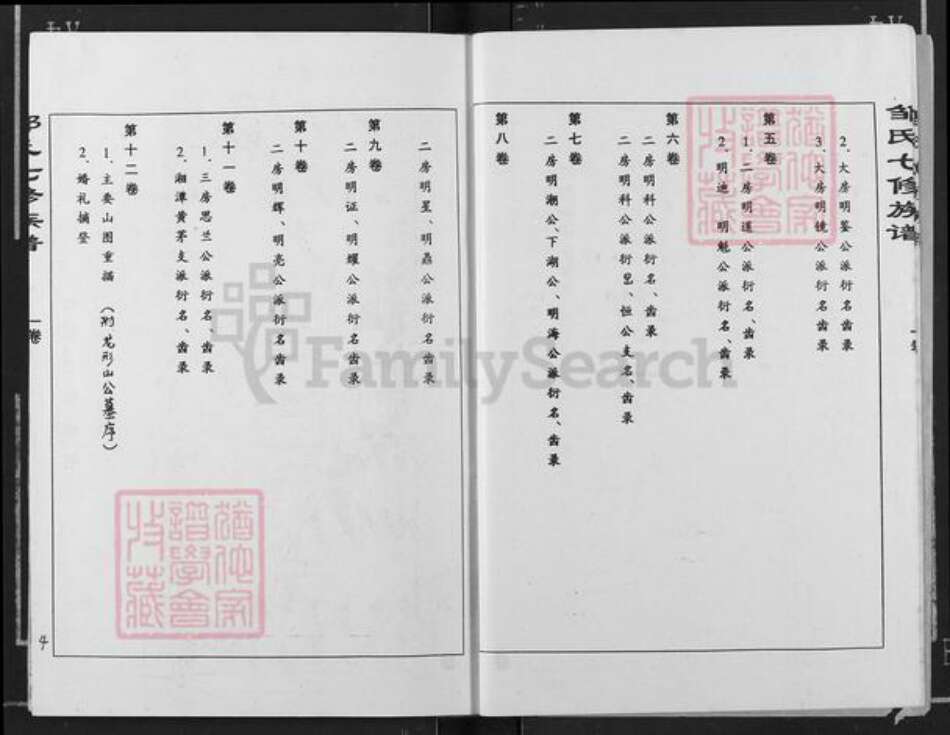 邹氏七修族谱
2、大房明鉴公派衍名齿录
3、大房明镜公派衍名齿录
第五卷
1、二房明道公派衍名、齿录
2、明迪 明魁公派衍名、齿录
第六卷
二房明科公派衍名、齿录
二房明科公派衍 、恒公支名、齿录
第七卷
二房明潮公、下湖公、明海公派衍名、齿录
第八卷
二房明星、明 公派衍名齿录
第九卷
二房明证、明耀公派衍名齿录
第十卷
二房明辉、明亮公派衍名齿录
第十一卷
1、三房思兰公派衍名、齿录
2、湘潭黄茅支派衍名、齿录
第十二卷
1、主要山图重描 (附龙形山公墓序)
2、婚礼摘登
一卷
4
FamilySearch
猶他家譜學會收藏
猶他家譜學會收藏